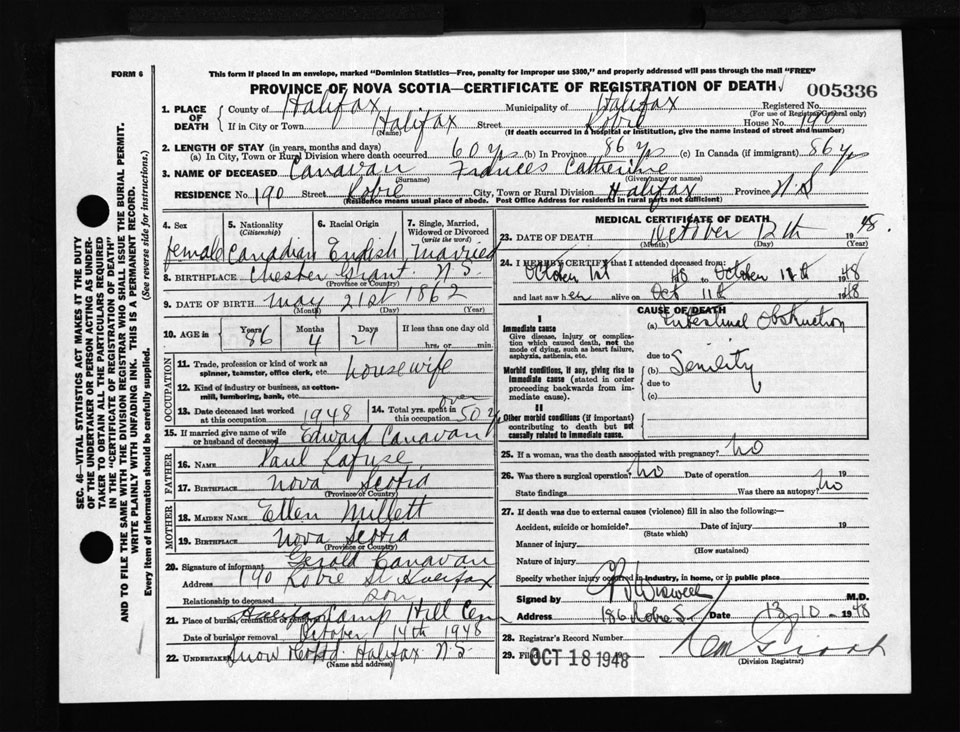 FORM 6
This form if placed in an envelope, marked "Dominion Statistics—Free, penalty for improper use $300," and properly addressed will pass through the mail "FREE"
PROVINCE OF NOVA SCOTIA—CERTIFICATE OF REGISTRATION OF DEATH
005336
1. PLACE OF DEATH
County of Halifax Municipality of Halifax Registered No.
(For use of Registrar General only)
If in City or Town Halifax Street Robie House No. 190
(Name) (If death occurred in a hospital or institution, give the name instead of street and number)
2. LENGTH OF STAY (in years, months and days)
(a) In City, Town or Rural Division where death occurred 60 yrs (b) In Province 86 yrs (c) In Canada (if immigrant) 86 yrs
3. NAME OF DECEASED Canavan Frances Catherine
(Surname) (Given name or names)
RESIDENCE No. 190 Street Robie City, Town or Rural Division Halifax Province N.S
(Residence means usual place of abode. Post Office Address for residents in rural parts not sufficient)
4. Sex female
5. Nationality (Citizenship) Canadian
6. Racial Origin English
7. Single, Married, Widowed or Divorced (write the word) Married
8. BIRTHPLACE Chester Grant N.S.
(Province or Country)
9. DATE OF BIRTH May 21st 1862
(Month) (Day) (Year)
10. AGE in Years 86 Months 4 Days 21 If less than one day old
hrs. or min.
OCCUPATION
11. Trade, profession or kind of work as spinner, teamster, office clerk, etc. housewife
12. Kind of industry or business, as cotton-mill, lumbering, bank, etc.
13. Date deceased last worked at this occupation 1948
14. Total yrs. spent in this occupation over 50 y
15. If married give name of wife or husband of deceased Edward Canavan
FATHER
16. NAME Paul Lafuse
17. BIRTHPLACE Nova Scotia
(Province or Country)
MOTHER
18. MAIDEN NAME Ellen Millett
19. BIRTHPLACE Nova Scotia
(Province or Country)
20. Signature of informant Gerald Canavan
Address 190 Robie St Halifax
Relationship to deceased son
21. Place of burial, cremation or removal Halifax Camp Hill Cem
Date of burial or removal October 14th 1948
22. UNDERTAKER Snow Halifax N.S.
(Name and address)
MEDICAL CERTIFICATE OF DEATH
23. DATE OF DEATH October 12th 1948.
(Month) (Day) (Year)
24. I HEREBY CERTIFY that I attended deceased from:
October 1st 48 to October 12th 1948
and last saw her alive on Oct 11th 1948
CAUSE OF DEATH
I
Immediate cause
Give disease, injury or complication which caused death, not the mode of dying, such as heart failure, asphyxia, asthenia, etc.
(a) Intestinal Obstruction
due to
Morbid conditions, if any, giving rise to immediate cause (stated in order proceeding backwards from immediate cause).
(b) Senility
due to
(c)
II
Other morbid conditions (if important) contributing to death but not causally related to immediate cause.
25. If a woman, was the death associated with pregnancy? No
26. Was there a surgical operation? No Date of operation 19
State findings Was there an autopsy? No
27. If death was due to external causes (violence) fill in also the following:—
Accident, suicide or homicide? Date of injury 19
(State which)
Manner of injury
(How sustained)
Nature of injury
Specify whether injury occurred in industry, in home, or in public place
Signed by M.D.
Address 186 Robie S. Date 13 10 - 1948
28. Registrar's Record Number
29. Filed OCT 18 1948
(Division Registrar)
SEC. 46—VITAL STATISTICS ACT MAKES IT THE DUTY
OF THE UNDERTAKER OR PERSON ACTING AS UNDER-
TAKER TO OBTAIN ALL THE PARTICULARS REQUIRED
IN THE "CERTIFICATE OF REGISTRATION OF DEATH"
AND TO FILE THE SAME WITH THE DIVISION REGISTRAR WHO SHALL ISSUE THE BURIAL PERMIT.
WRITE PLAINLY WITH UNFADING INK. THIS IS A PERMANENT RECORD.
Every item of information should be carefully supplied. (See reverse side for instructions.)